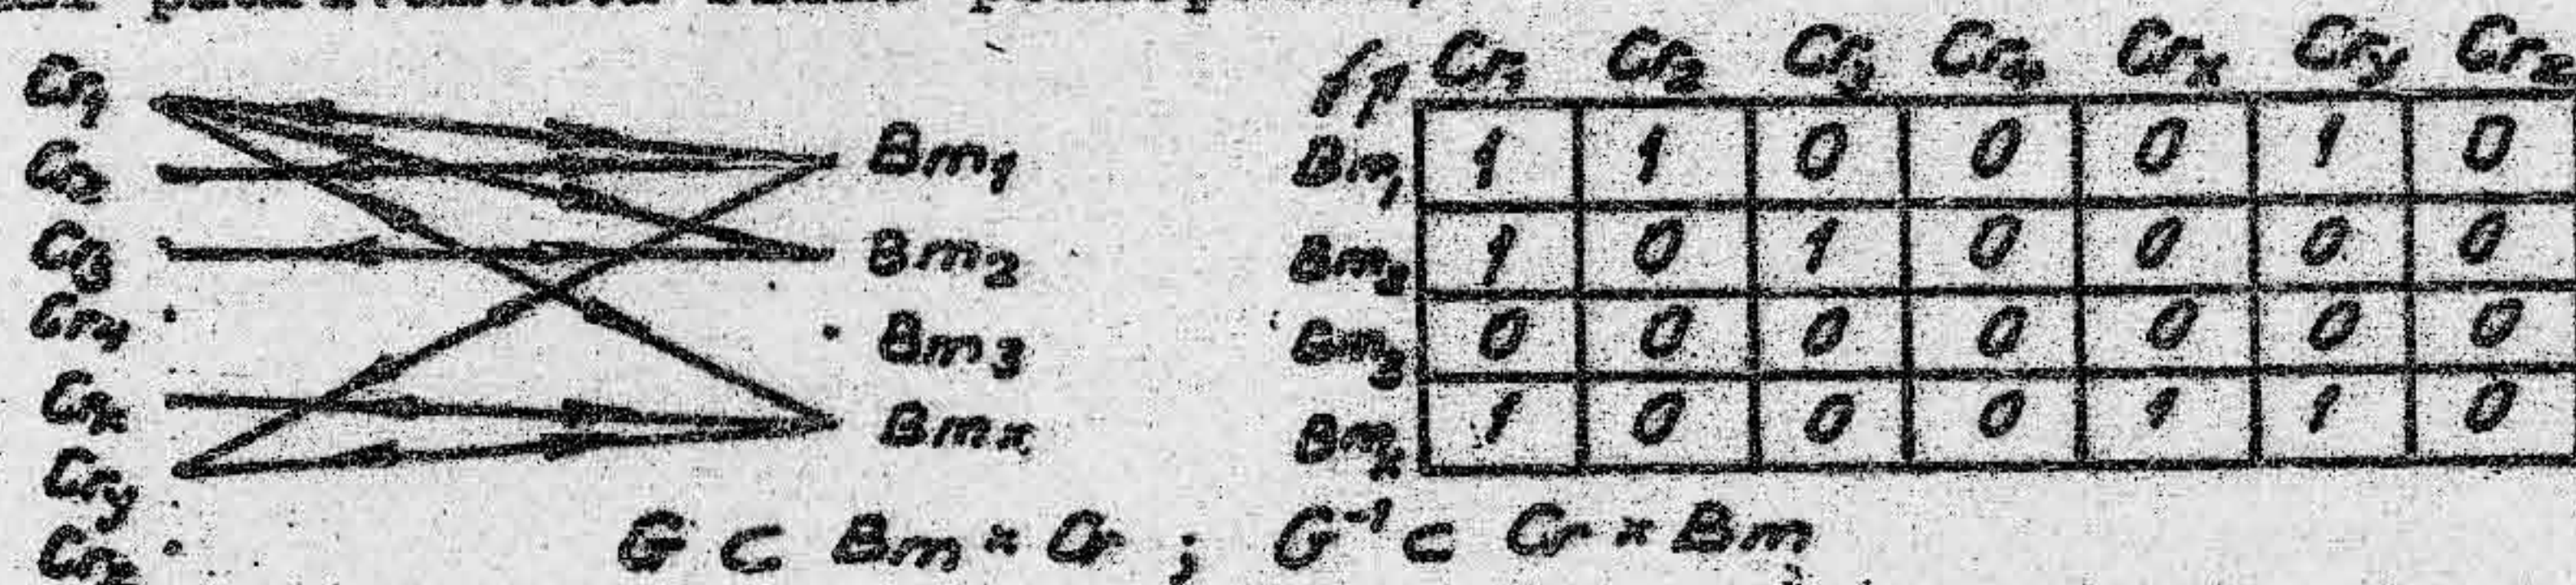 Cr1
Cr2
Cr3
Cr4
Crx
Cry
Crz
Bm1
Bm2
Bm3
Bmx
Cr1 Cr2 Cr3 Cr4 Crx Cry Crz
Bm1 1 1 0 0 0 1 0
Bm2 1 0 1 0 0 0 0
Bm3 0 0 0 0 0 0 0
Bmx 1 0 0 0 1 1 0
G ⊂ Bm × Cr ; G⁻¹ ⊂ Cr × Bm